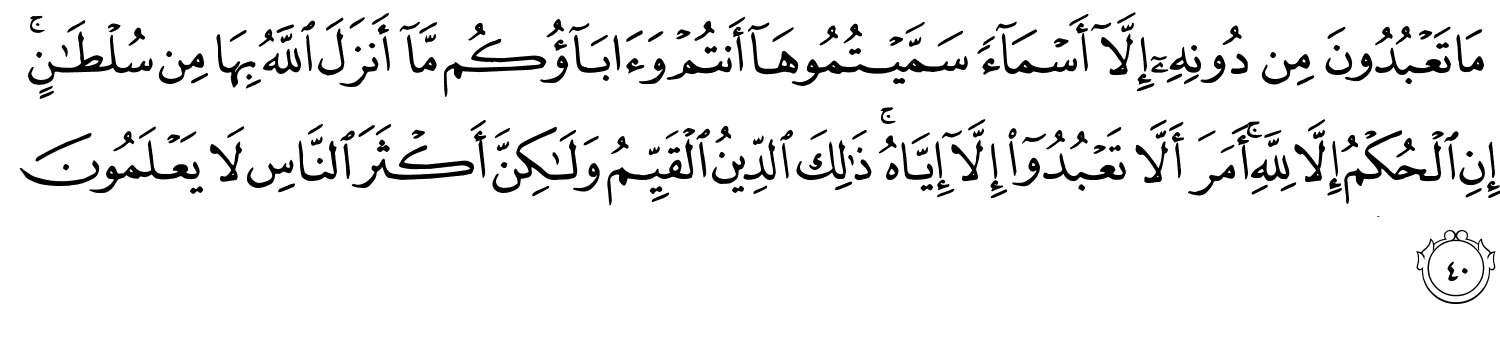 مَا تَعۡبُدُونَ مِن دُونِهِۦٓ إِلَّآ أَسۡمَآءٗ سَمَّيۡتُمُوهَآ أَنتُمۡ وَءَابَآؤُكُم مَّآ أَنزَلَ ٱللَّهُ بِهَا مِن سُلۡطَٰنٍۚ
إِنِ ٱلۡحُكۡمُ إِلَّا لِلَّهِۚ أَمَرَ أَلَّا تَعۡبُدُوٓاْ إِلَّآ إِيَّاهُۚ ذَٰلِكَ ٱلدِّينُ ٱلۡقَيِّمُ وَلَٰكِنَّ أَكۡثَرَ ٱلنَّاسِ لَا يَعۡلَمُونَ
٤٠